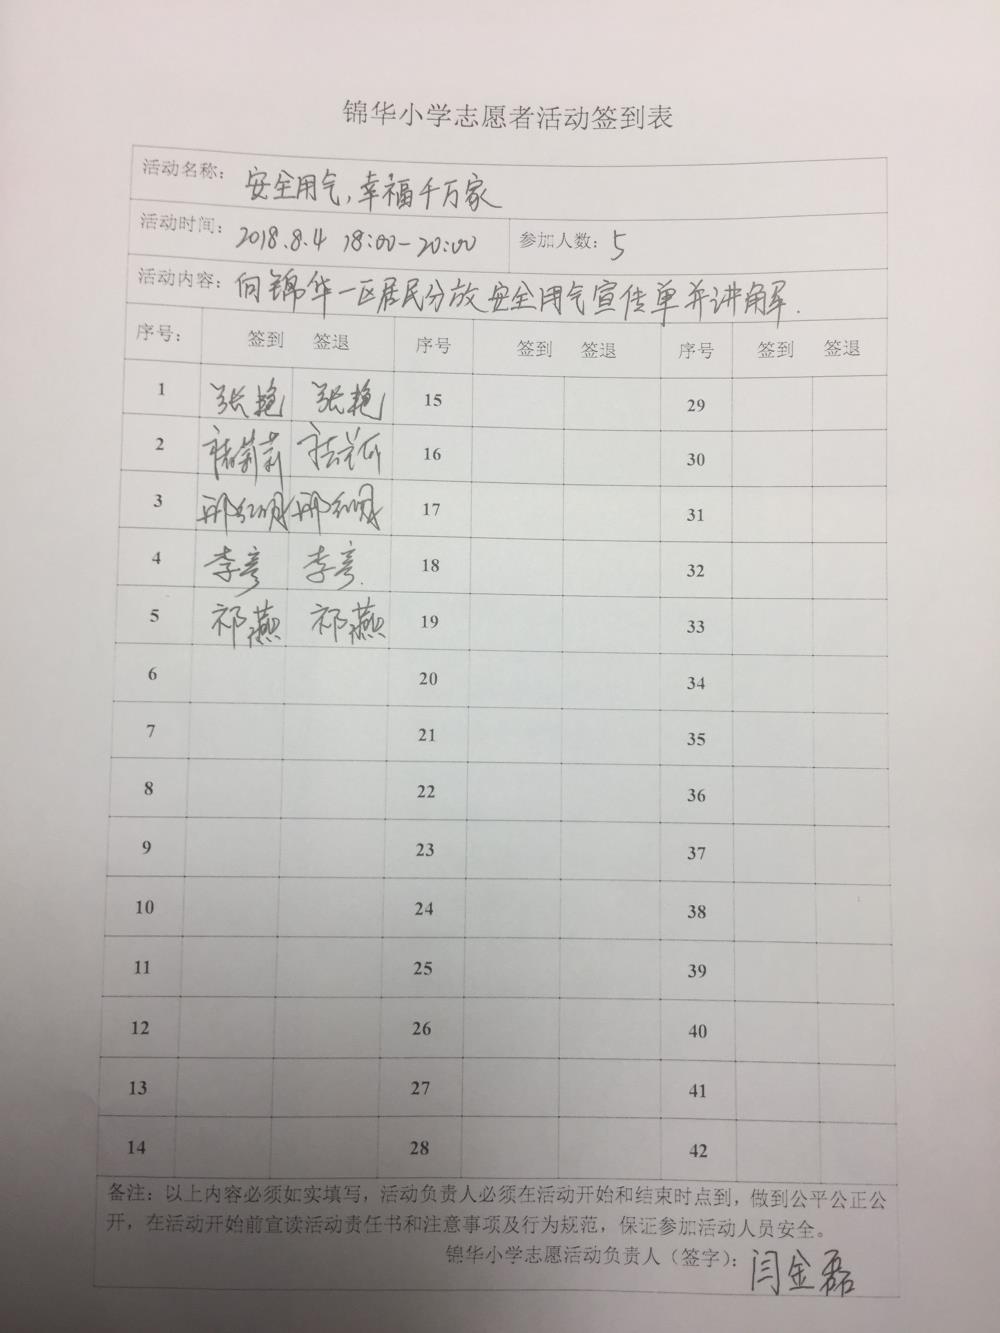 锦华小学志愿者活动签到表
活动名称： 安全用气，幸福千万家
活动时间： 2018.8.4 18:00-20:00 参加人数：5
活动内容： 向锦华一区居民分放安全用气宣传单并讲解.
序号： 签到 签退 序号 签到 签退 序号 签到 签退
1 张艳 张艳 15 29
2 16 30
3 17 31
4 李彦 李彦 18 32
5 祁燕 祁燕 19 33
6 20 34
7 21 35
8 22 36
9 23 37
10 24 38
11 25 39
12 26 40
13 27 41
14 28 42
备注：以上内容必须如实填写，活动负责人必须在活动开始和结束时点到，做到公平公正公
开，在活动开始前宣读活动责任书和注意事项及行为规范，保证参加活动人员安全。
锦华小学志愿活动负责人（签字）：闫金磊